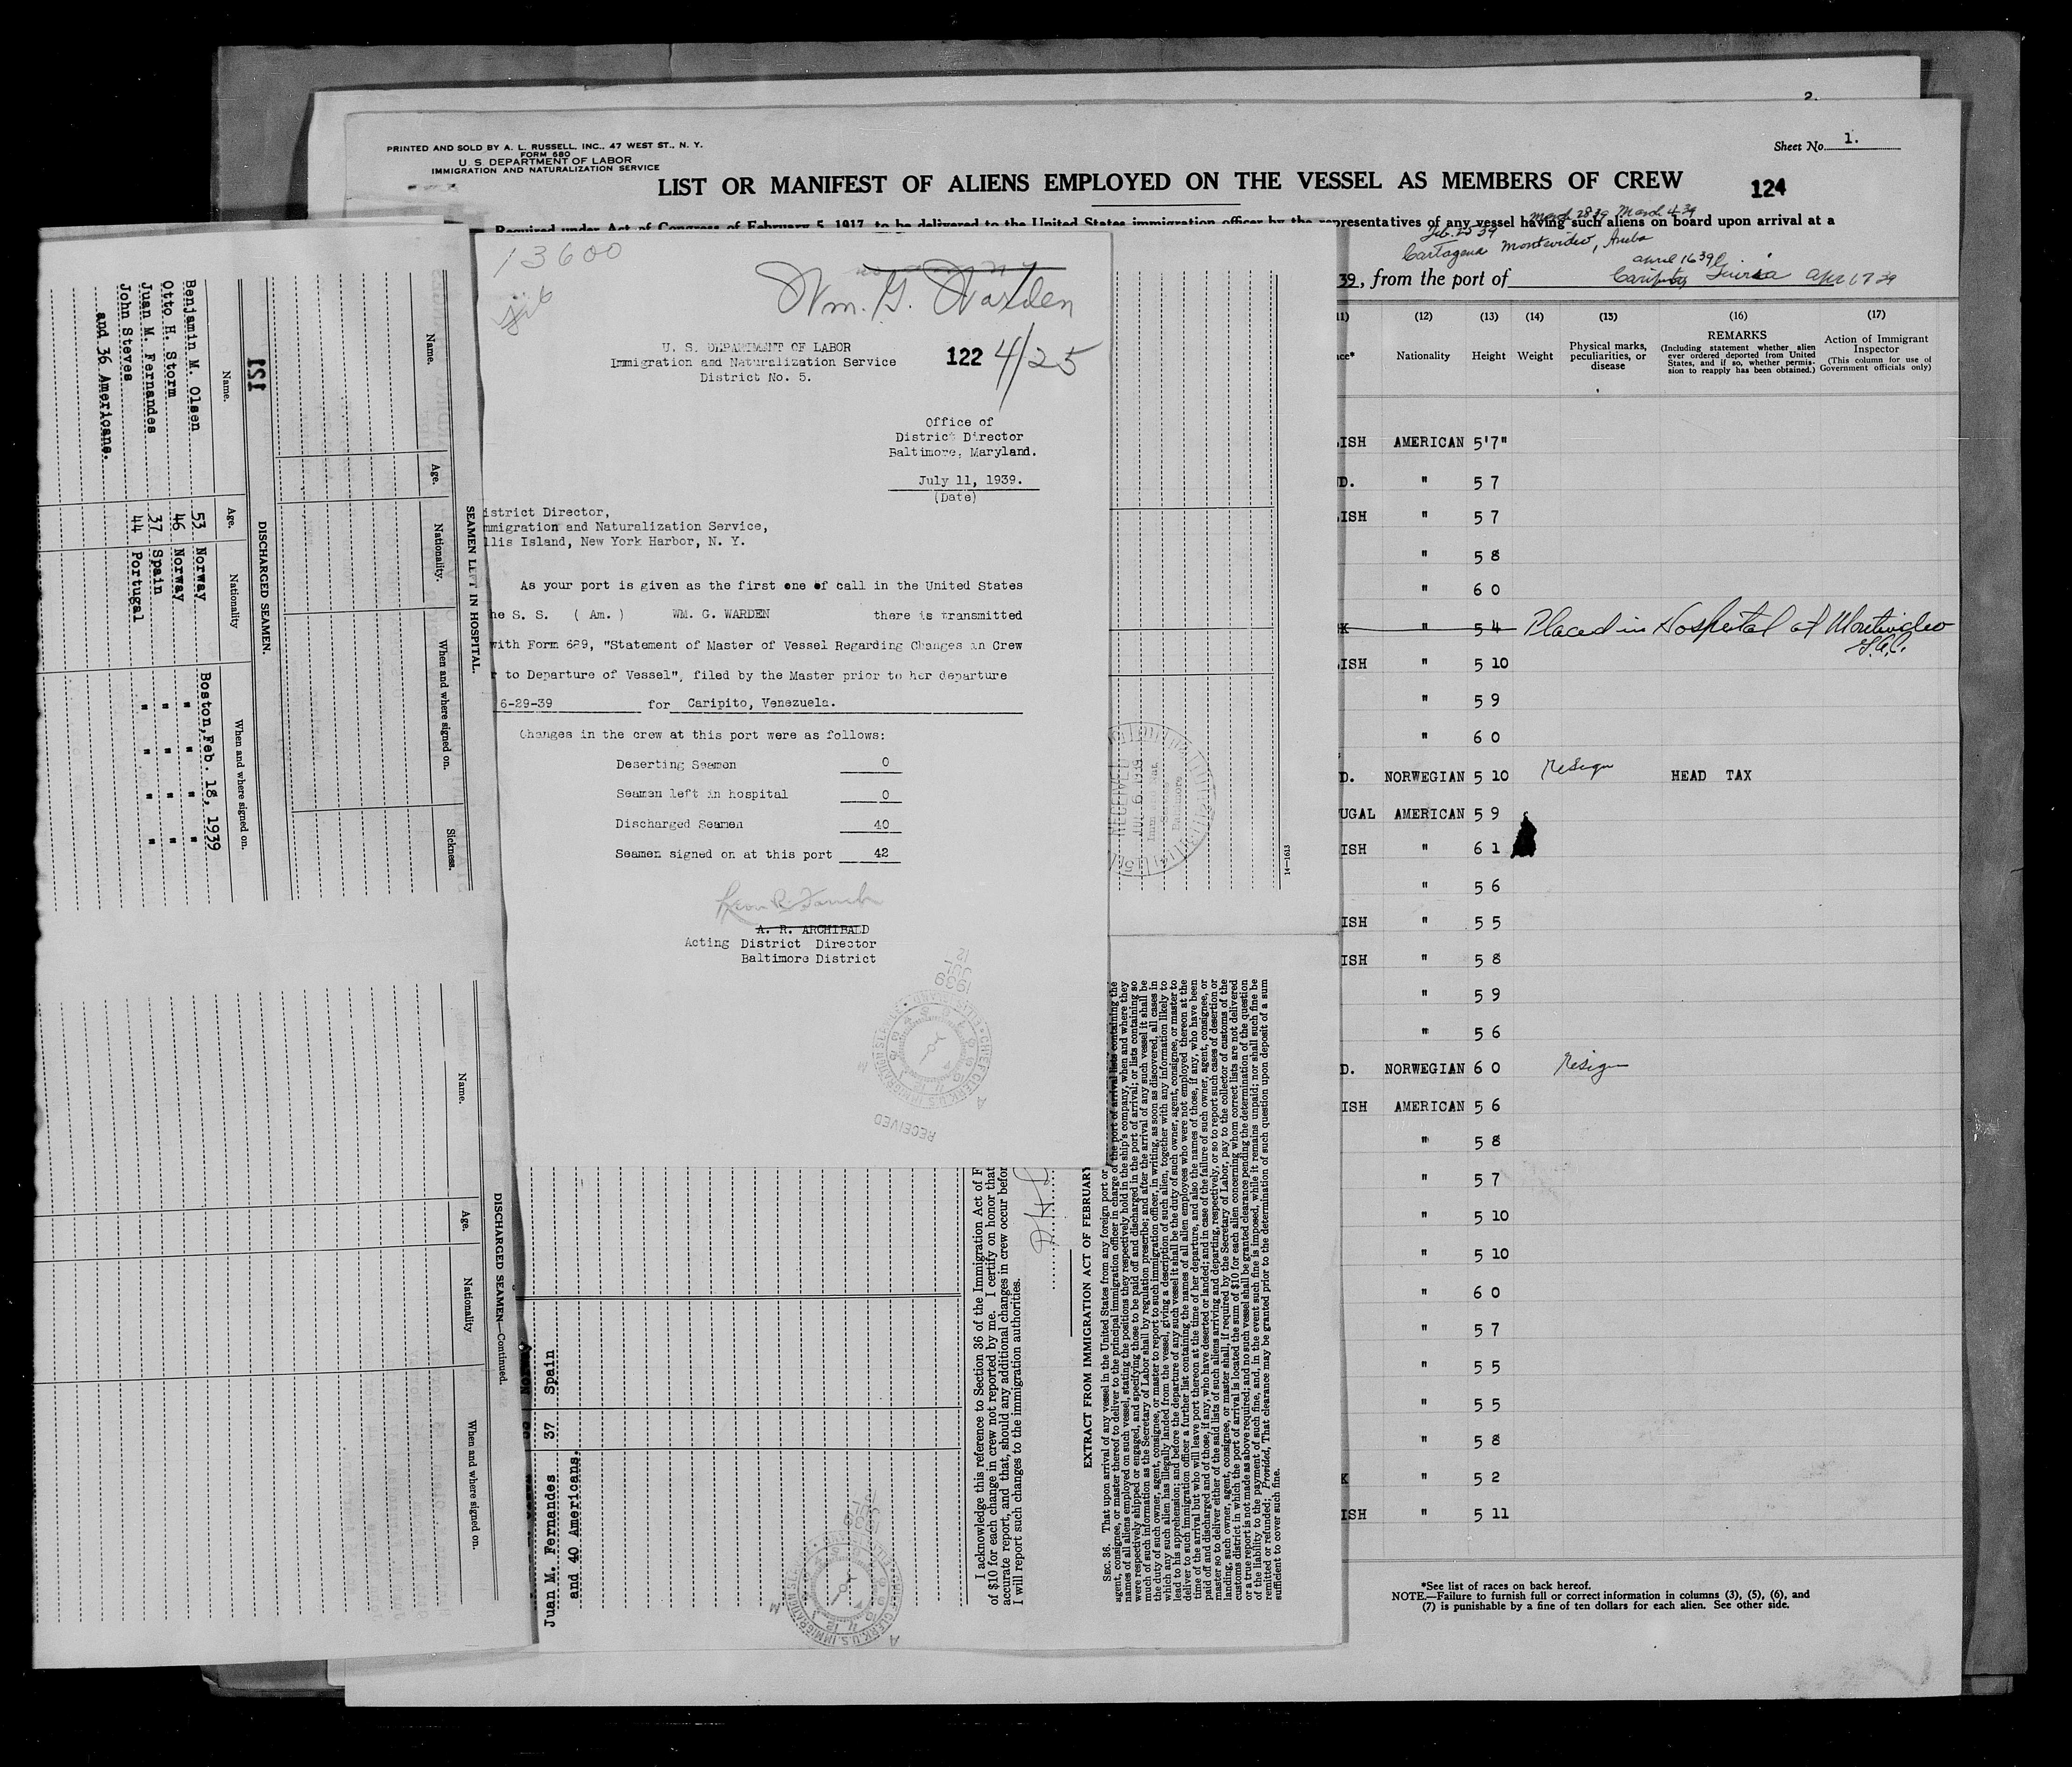 2.
PRINTED AND SOLD BY A. L. RUSSELL, INC., 47 WEST ST., N. Y.
FORM 680
U. S. DEPARTMENT OF LABOR
IMMIGRATION AND NATURALIZATION SERVICE
Sheet No. 1.
LIST OR MANIFEST OF ALIENS EMPLOYED ON THE VESSEL AS MEMBERS OF CREW
124
Required under Act of Congress of February 5, 1917, to be delivered to the United States immigration officer by the representatives of any vessel having such aliens on board upon arrival at a
March 28 39 March 4 39
Feb. 25 39
Cartagena Montevideo, Aruba
april 16 39
39, from the port of Caripito Guiria apr 17 39
(11) (12) (13) (14) (15) (16) (17)
Nationality
Height
Weight
Physical marks, peculiarities, or disease
REMARKS
(Including statement whether alien ever ordered deported from United States, and if so, whether permission to reapply has been obtained.)
Action of Immigrant Inspector
(This column for use of Government officials only)
ISH AMERICAN 5'7"
D. " 5 7
ISH " 5 7
" 5 8
" 6 0
K " 5 4 Placed in Hospital at Montevideo
ISH " 5 10
" 5 9
" 6 0
D. NORWEGIAN 5 10 Resign HEAD TAX
UGAL AMERICAN 5 9
ISH " 6 1
" 5 6
ISH " 5 5
ISH " 5 8
" 5 9
" 5 6
D. NORWEGIAN 6 0 Resign
ISH AMERICAN 5 6
" 5 8
" 5 7
" 5 10
" 5 10
" 6 0
" 5 7
" 5 5
" 5 5
" 5 8
K " 5 2
ISH " 5 11
*See list of races on back hereof.
NOTE.—Failure to furnish full or correct information in columns (3), (5), (6), and
(7) is punishable by a fine of ten dollars for each alien. See other side.
13600
Wm. G. Warden
122 4/25
U. S. DEPARTMENT OF LABOR
Immigration and Naturalization Service
District No. 5.
Office of
District Director
Baltimore, Maryland.
July 11, 1939.
(Date)
istrict Director,
mmigration and Naturalization Service,
llis Island, New York Harbor, N. Y.
As your port is given as the first one of call in the United States
he S. S. ( Am. ) WM. G. WARDEN there is transmitted
with Form 689, "Statement of Master of Vessel Regarding Changes in Crew
r to Departure of Vessel", filed by the Master prior to her departure
6-29-39 for Caripito, Venezuela.
Changes in the crew at this port were as follows:
Deserting Seamen 0
Seamen left in hospital 0
Discharged Seamen 40
Seamen signed on at this port 42
A. R. ARCHIBALD
Acting District Director
Baltimore District
RECEIVED
1939
JUL
12
CHIEF CLERK, U.S. IMMIGRATION SERVICE
151
SEAMEN LEFT IN HOSPITAL.
Name. Age. Nationality. When and where signed on. Sickness.
DISCHARGED SEAMEN.
Name. Age. Nationality When and where signed on.
Benjamin M. Olsen 53 Norway Boston, Feb. 18, 1939
Otto H. Storm 46 Norway " " "
Juan M. Fernandes 37 Spain " " "
John Steves 44 Portugal " " "
and 36 Americans.
DISCHARGED SEAMEN—Continued.
Name. Age. Nationality When and where signed on.
Juan M. Fernandes 37 Spain
and 40 Americans.
I acknowledge this reference to Section 36 of the Immigration Act of F
of $10 for each change in crew not reported by me. I certify on honor that
accurate report, and that, should any additional changes in crew occur before
I will report such changes to the immigration authorities.
EXTRACT FROM IMMIGRATION ACT OF FEBRUARY
SEC. 36. That upon arrival of any vessel in the United States from any foreign port or
agent, consignee, or master thereof to deliver to the principal immigration officer in charge of the port of arrival lists containing the
names of all aliens employed on such vessel, stating the positions they respectively hold in the ship's company, when and where they
were respectively shipped or engaged, and specifying those to be paid off and discharged in the port of arrival; or lists containing so
much of such information as the Secretary of Labor shall by regulation prescribe; and after the arrival of any such vessel it shall be
the duty of such owner, agent, consignee, or master to report to such immigration officer, in writing, as soon as discovered, all cases in
which any such alien has illegally landed from the vessel, giving a description of such alien, together with any information likely to
lead to his apprehension; and before the departure of any such vessel it shall be the duty of such owner, agent, consignee, or master to
deliver to such immigration officer a further list containing the names of all alien employees who were not employed thereon at the
time of the arrival but who will leave port thereon at the time of her departure, and also the names of those, if any, who have been
paid off and discharged and of those, if any, who have deserted or landed; and in case of the failure of such owner, agent, consignee, or
master so to deliver either of the said lists of such aliens arriving and departing, respectively, or so to report such cases of desertion or
landing, such owner, agent, consignee, or master shall, if required by the Secretary of Labor, pay to the collector of customs of the
customs district in which the port of arrival is located the sum of $10 for each alien concerning whom correct lists are not delivered
or a true report is not made as above required; and no such vessel shall be granted clearance pending the determination of the question
of the liability to the payment of such fine, and, in the event such fine is imposed, while it remains unpaid; nor shall such fine be
remitted or refunded; Provided, That clearance may be granted prior to the determination of such question upon deposit of a sum
sufficient to cover such fine.
RECEIVED
JUL 6 1939
Baltimore
14—1613